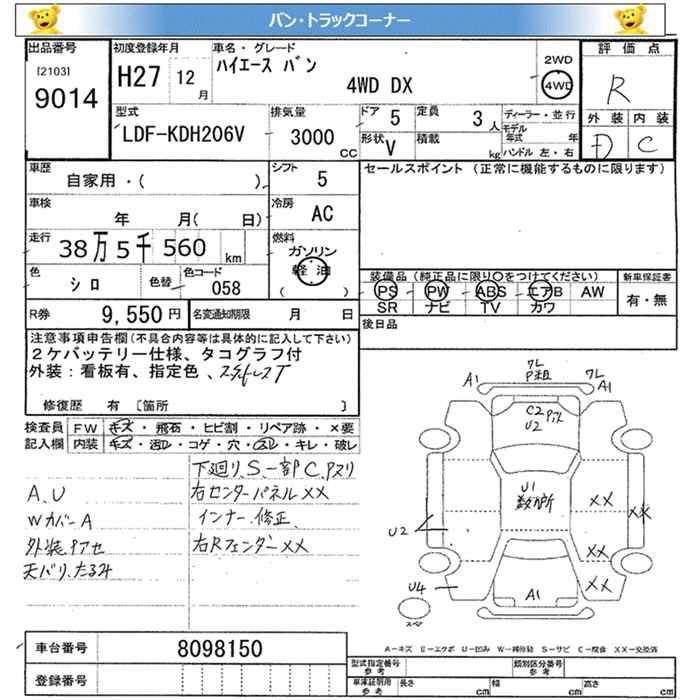 バン・トラックコーナー
出品番号
[2103]
9014
初度登録年月
H27 12月
車名・グレード
ハイエース バン
4WD DX
2WD
4WD
評価点
R
外装 内装
D C
型式
LDF-KDH206V
排気量
3000 CC
ドア 5
定員 3 人
形状 V
積載 kg
ディーラー・並行
モデル年式 年
ハンドル 左・右
車歴
自家用・( )
シフト
5
セールスポイント (正常に機能するものに限ります)
車検
年 月( 日)
冷房
AC
走行
38万5千560 km
燃料
ガソリン
軽油
( )
色
シロ
色替
色コード
058
装備品 (純正品に限り〇をつけてください)
PS PW ABS エアB AW
SR ナビ TV カワ
新車保証書
有・無
R券 9,550円
名変通知期限 月 日
後日品
注意事項申告欄(不具合内容等は具体的に記入して下さい)
2ケバッテリー仕様、タコグラフ付
外装:看板有、指定色、
修復歴 有 [箇所 ]
検査員記入欄
FW キズ・飛石・ヒビ割・リペア跡・×要
内装 キズ・汚レ・コゲ・穴・スレ・キレ・破レ
下廻り、S、一部C、アスリ
A、U 右センターパネルXX
WカバーA インナー修正
外装、アセ 右RフェンダーXX
天バリ、たるみ
A1
ワレ
P粗
ワレ
A1
C2
U2
U1
XX
XX
U2
XX
XX
U4
A1
スペア
A-キズ E-エクボ U-凹み W-補修跡 S-サビ C-腐食 XX-交換済
車台番号 8098150
登録番号
型式指定番号
参考
類別区分番号
参考
車庫証明用
参考
長さ cm
幅 cm
高さ cm